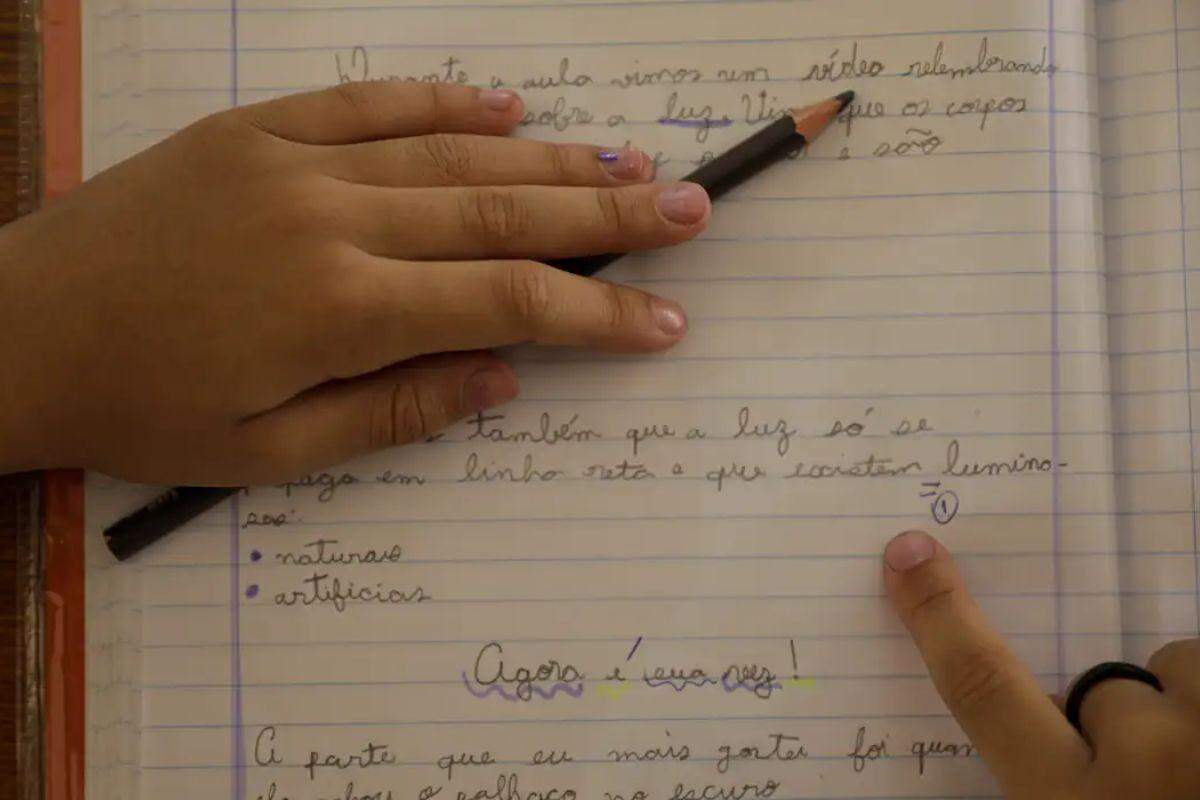 Durante a aula vimos um vídeo relembrando
sobre a luz. que os corpos
e são
também que a luz só se
em linha reta e que existem lumino-
sos:
• naturais
• artificias
①
Agora é sua vez!
A parte que eu mais gostei foi
o palhaço no escuro